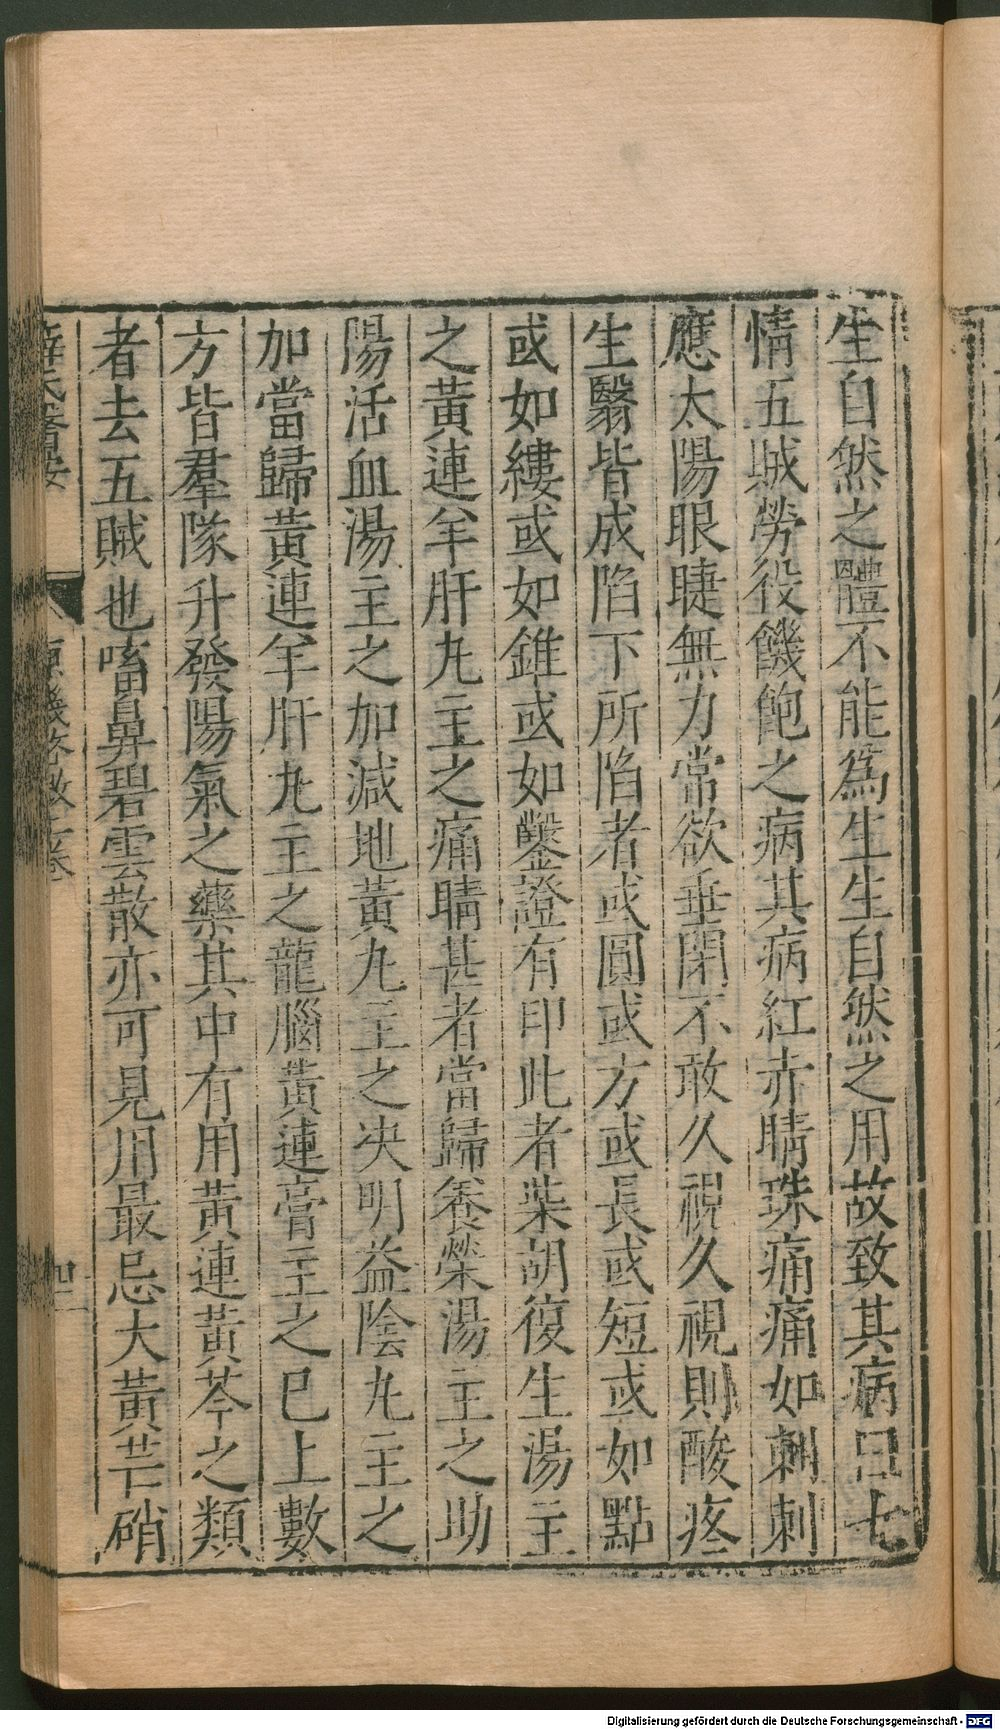 生自然之體不能爲生生自然之用故致其病曰七
情五賊勞役饑飽之病其病紅赤睛珠痛痛如刺刺
應太陽眼睫無力常欲垂閉不敢久視久視則酸疼
生翳皆成陷下所陷者或圓或方或長或短或如點
或如縷或如錐或如鑿證有印此者柴胡復生湯主
之黃連羊肝丸主之痛睛甚者當歸養榮湯主之助
陽活血湯主之加減地黃丸主之决明益陰丸主之
加當歸黃連羊肝丸主之龍腦黃連膏主之已上數
方皆羣隊升發陽氣之藥其中有用黃連黃芩之類
者去五賊也㗜鼻碧雲散亦可見用最忌大黃芒硝
薛氏醫按
原機啓微上卷
四
Digitalisierung gefördert durch die Deutsche Forschungsgemeinschaft - DFG